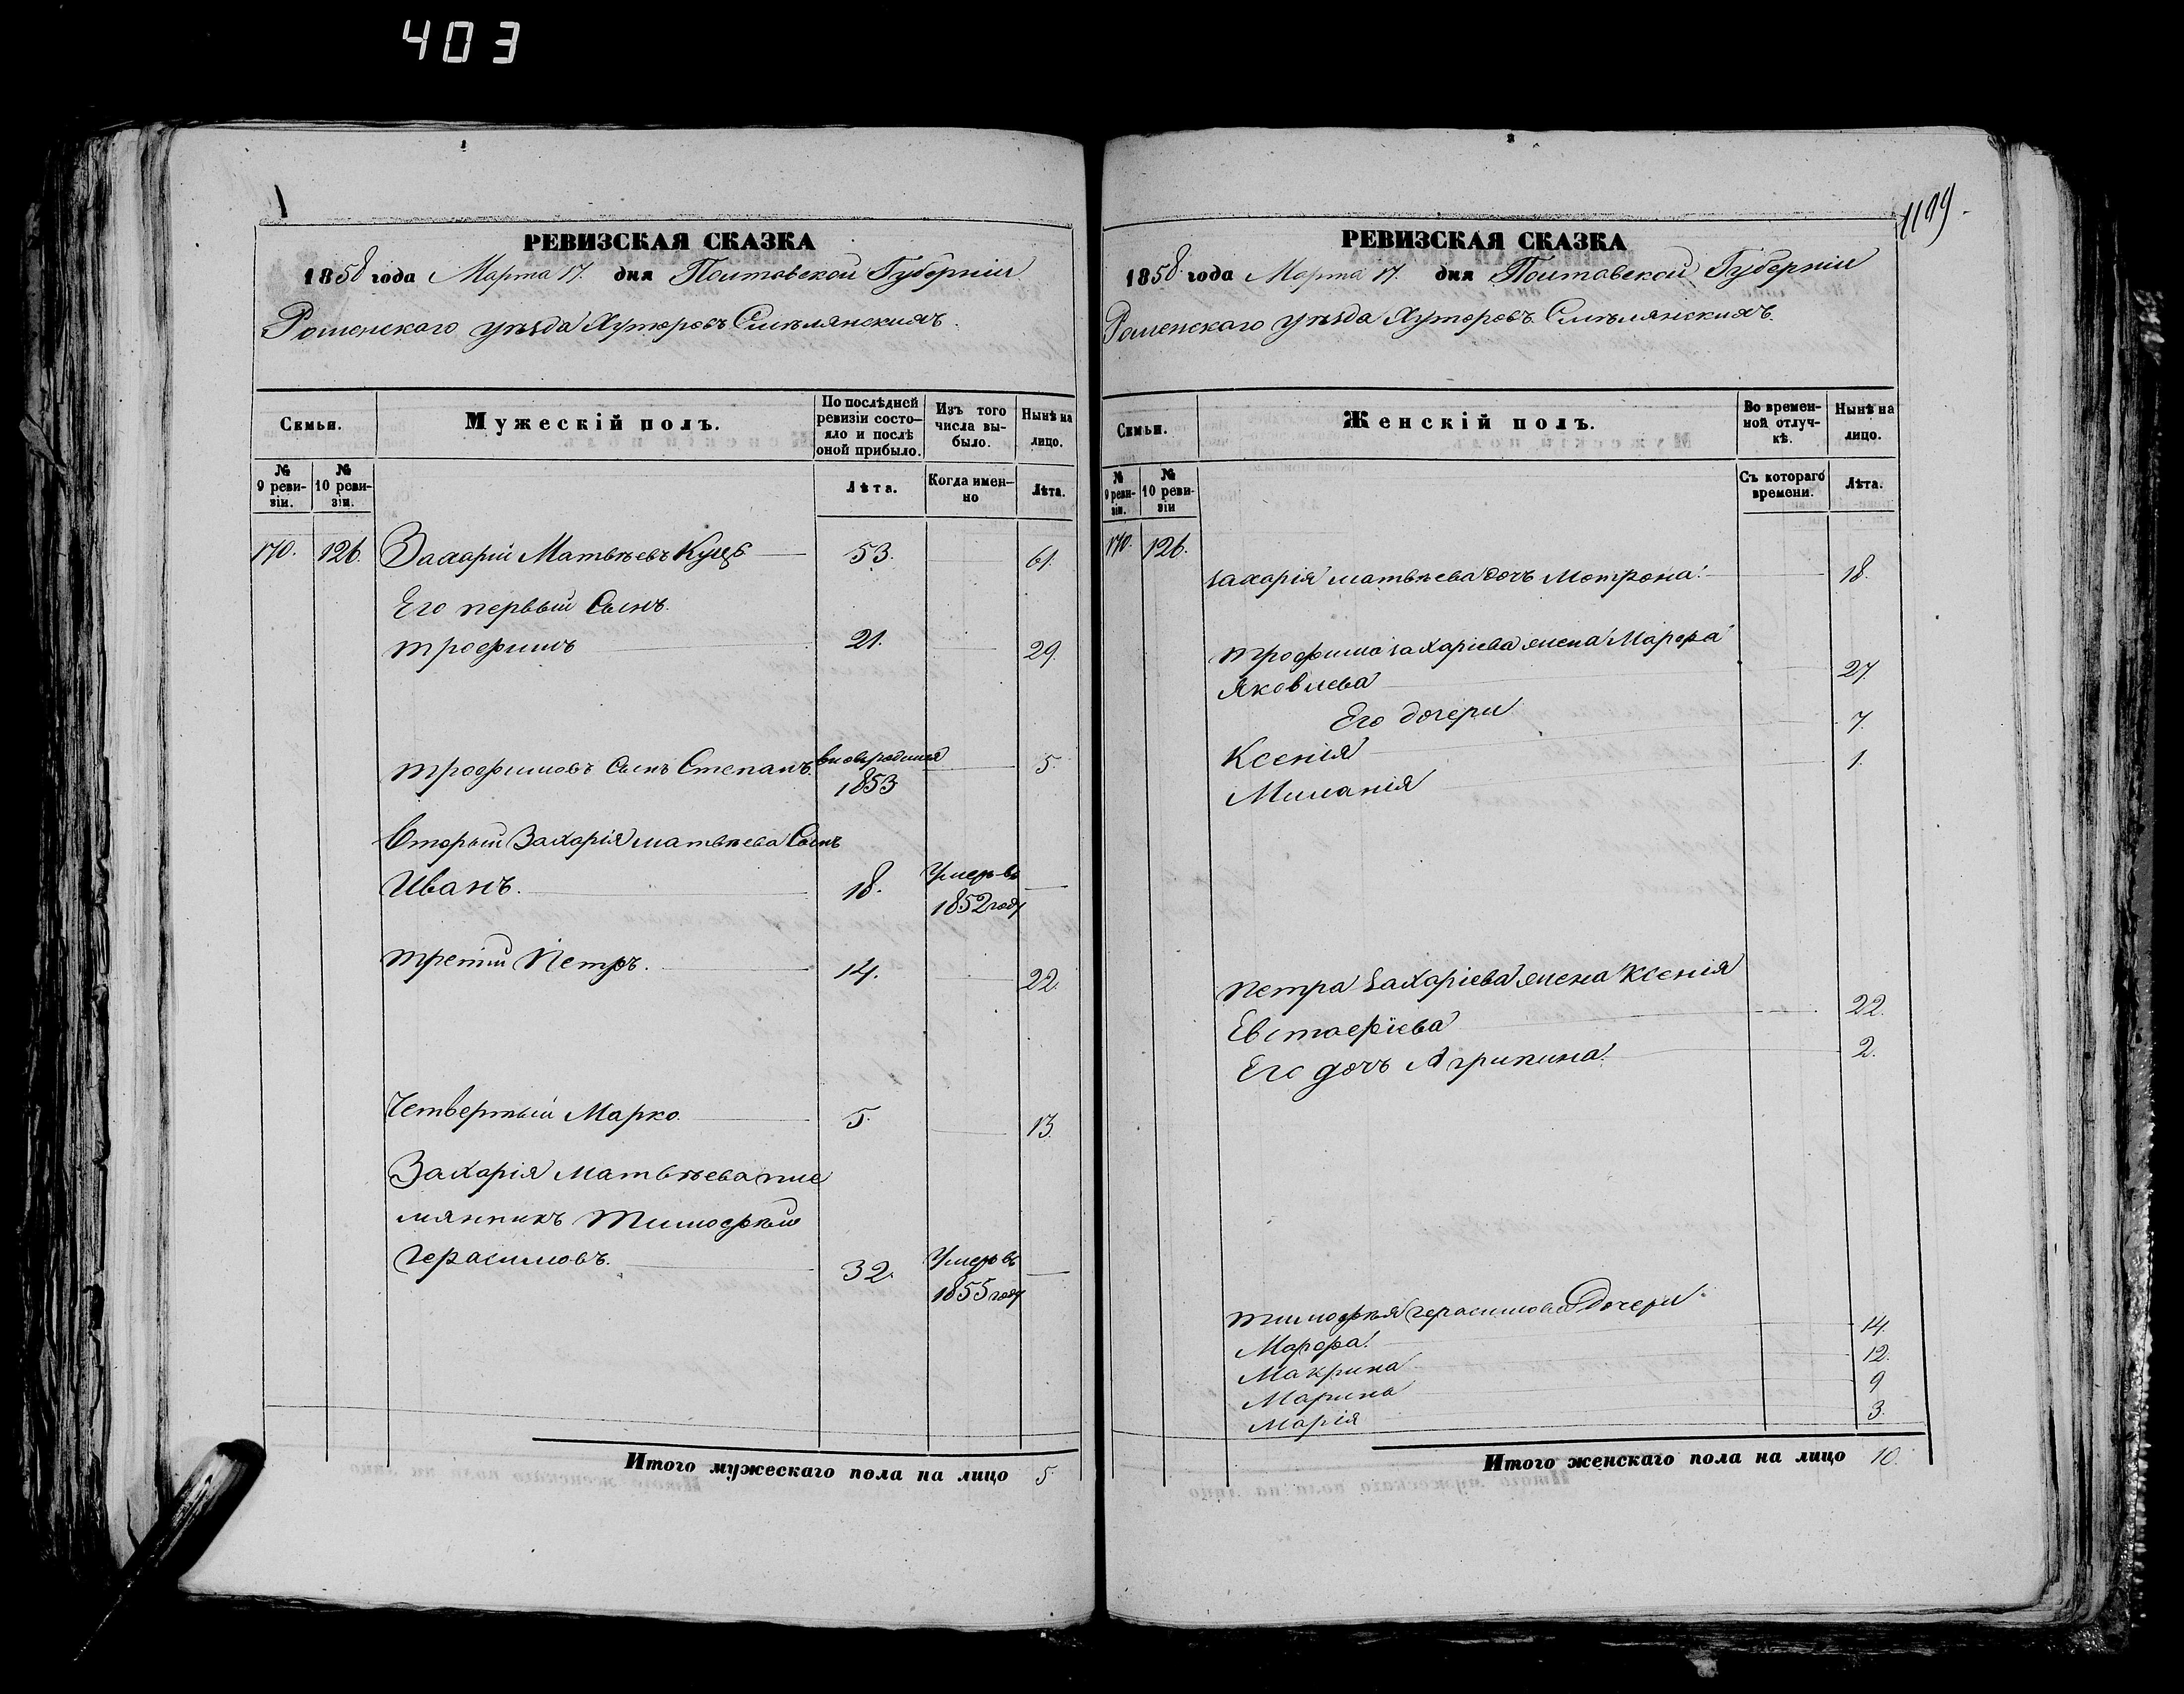 403
РЕВИЗСКАЯ СКАЗКА
1858 года Марта 17. дня Полтавской Губерніи
Роменскаго уѣзда Хуторовъ Смѣлянскихъ.
Семьи.
Мужескій полъ.
По послѣдней ревизіи состо-
яло и послѣ оной прибыло.
Изъ того числа вы-
было.
Нынѣ на лицо.
№ 9 реви-
зіи.
№ 10 реви-
зіи.
Лѣта.
Когда имен-
но
Лѣта.
170. 126. Захарій Матвѣевъ Куцъ 53. 61.
Его первый Сынъ.
трофимъ 21. 29.
трофимовъ Сынъ Степанъ. вновьродился 1853 5.
Вторый Захарія матвѣева Сынъ
Иванъ. 18. Умеръ въ 1852 году
третій Петръ. 14. 22.
Четвертый Марко. 5. 13.
Захарія Матвѣева пле
мянникъ Тимофѣй
герасимовъ. 32. Умеръ въ 1855 году
Итого мужескаго пола на лицо 5.
1199.
РЕВИЗСКАЯ СКАЗКА
1858 года Марта 17. дня Полтавской Губерніи
Роменскаго уѣзда Хуторовъ Смѣлянскихъ.
Семьи.
Женскій полъ.
Во времен-
ной отлуч-
кѣ.
Нынѣ на лицо.
№ 9 реви-
зіи.
№ 10 реви-
зіи
Съ котораго времени.
Лѣта.
170. 126.
захарія матвѣева дочь Мотрона. 18.
трофима захаріева жена Марфа
Яковлева 27.
Его дочери
Ксенія 7.
Миланія 1.
Петра захаріева жена Ксенія
Евстафіева 22.
Его дочь Агрипина. 2.
тимофѣя герасимова Дочери
Марфа. 14.
Макрина 12.
Марина 9
Марія 3.
Итого женскаго пола на лицо 10.